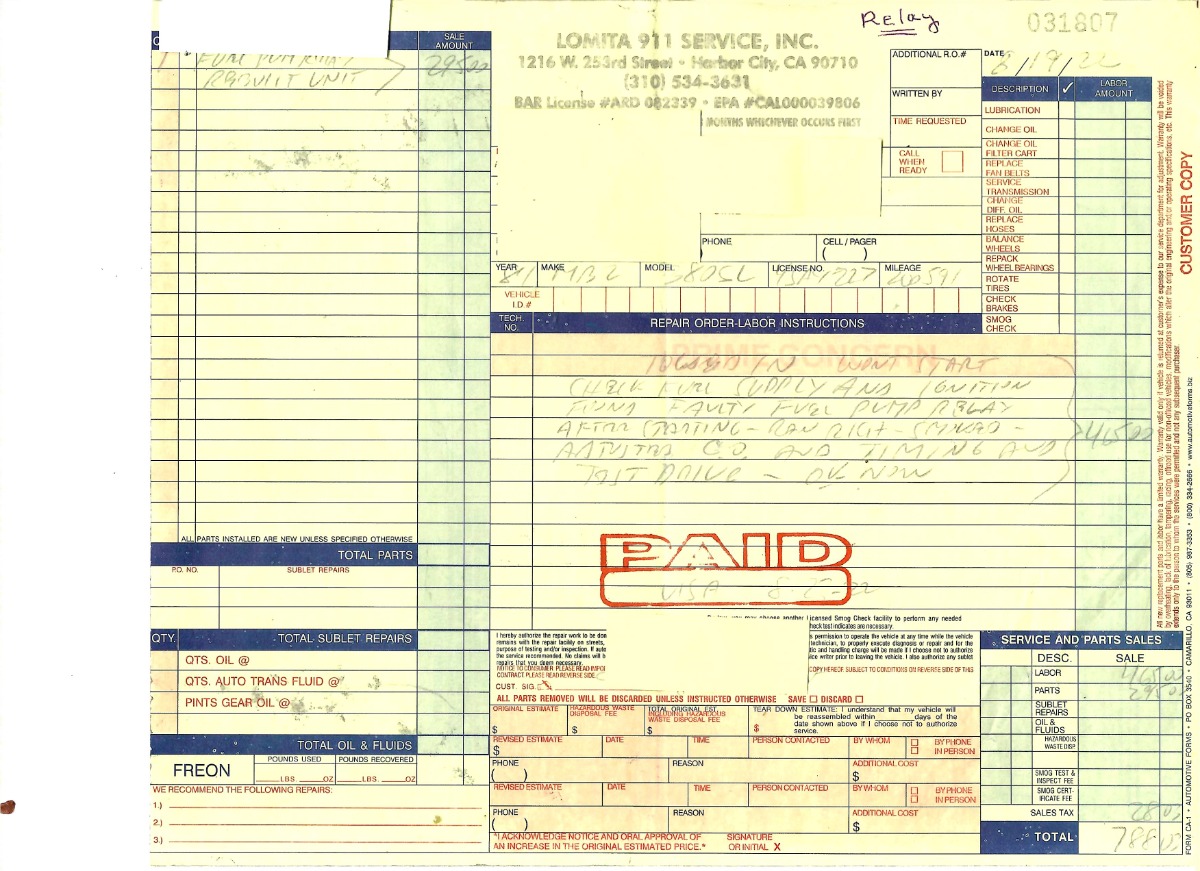 Relay
031807
SALE AMOUNT
1 FUEL PUMP RELAY 295 00
REBUILT UNIT
LOMITA 911 SERVICE, INC.
1216 W. 253rd Street • Harbor City, CA 90710
(310) 534-3631
BAR License #ARD 082339 • EPA #CAL000039806
MONTHS WHICHEVER OCCURS FIRST
ADDITIONAL R.O.#
DATE
WRITTEN BY
TIME REQUESTED
CALL WHEN READY
PHONE
CELL / PAGER
( )
YEAR 81 MAKE MBZ MODEL 380SL LICENSE NO. MILEAGE
VEHICLE I.D.#
DESCRIPTION ✓ LABOR AMOUNT
LUBRICATION
CHANGE OIL
CHANGE OIL FILTER CART
REPLACE FAN BELTS
SERVICE TRANSMISSION
CHANGE DIFF. OIL
REPLACE HOSES
BALANCE WHEELS
REPACK WHEEL BEARINGS
ROTATE TIRES
CHECK BRAKES
SMOG CHECK
TECH. NO.
REPAIR ORDER-LABOR INSTRUCTIONS
PRIME CONCERN
TOWED IN WONT START
CHECK FUEL SUPPLY AND IGNITION
FOUND FAULTY FUEL PUMP RELAY
AFTER STARTING - RAN RICH - SMOKED -
ADJUSTED C.O. AND TIMING AND
TEST DRIVE - OK NOW
465 00
PAID
VISA 8-22-22
ALL PARTS INSTALLED ARE NEW UNLESS SPECIFIED OTHERWISE
TOTAL PARTS
P.O. NO. SUBLET REPAIRS
QTY. TOTAL SUBLET REPAIRS
QTS. OIL @
QTS. AUTO TRANS FLUID @
PINTS GEAR OIL @
TOTAL OIL & FLUIDS
FREON
POUNDS USED
POUNDS RECOVERED
LBS. OZ
LBS. OZ
WE RECOMMEND THE FOLLOWING REPAIRS:
1.)
2.)
3.)
you may choose another Licensed Smog Check facility to perform any needed
check test indicates are necessary.
I hereby authorize the repair work to be don
remains with the repair facility on streets,
purpose of testing and/or inspection. If aute
the service recommended. No claims will b
repairs that you deem necessary.
NOTICE TO CONSUMER PLEASE READ IMPO
CONTRACT PLEASE READ REVERSE SIDE.
s permission to operate the vehicle at any time while the vehicle
technician, to properly execute diagnosis or repair and for the
tic and handling charge will be made if I choose not to authorize
ice writer prior to leaving the vehicle. I also authorize any sublet
COPY HEREOF SUBJECT TO CONDITIONS ON REVERSE SIDE OF THIS
CUST. SIG. X
ALL PARTS REMOVED WILL BE DISCARDED UNLESS INSTRUCTED OTHERWISE SAVE DISCARD
ORIGINAL ESTIMATE
$
HAZARDOUS WASTE DISPOSAL FEE
$
TOTAL ORIGINAL EST. INCLUDING HAZARDOUS WASTE DISPOSAL FEE
$
TEAR DOWN ESTIMATE: I understand that my vehicle will
be reassembled within ______ days of the
date shown above if I choose not to authorize
service.
$
REVISED ESTIMATE DATE TIME PERSON CONTACTED BY WHOM BY PHONE IN PERSON
$
PHONE REASON ADDITIONAL COST
( ) $
REVISED ESTIMATE DATE TIME PERSON CONTACTED BY WHOM BY PHONE IN PERSON
PHONE REASON ADDITIONAL COST
( ) $
"I ACKNOWLEDGE NOTICE AND ORAL APPROVAL OF
AN INCREASE IN THE ORIGINAL ESTIMATED PRICE."
SIGNATURE OR INITIAL X
SERVICE AND PARTS SALES
DESC. SALE
LABOR 465 00
PARTS 295 00
SUBLET REPAIRS
OIL & FLUIDS
HAZARDOUS WASTE DISP.
SMOG TEST & INSPECT FEE
SMOG CERTIFICATE FEE
SALES TAX 28 03
TOTAL 788 03
CUSTOMER COPY
FORM CA-1 • AUTOMOTIVE FORMS • PO BOX 3540 • CAMARILLO, CA 93011 • (805) 987-3353 • (800) 334-2666 • www.automotiveforms.biz